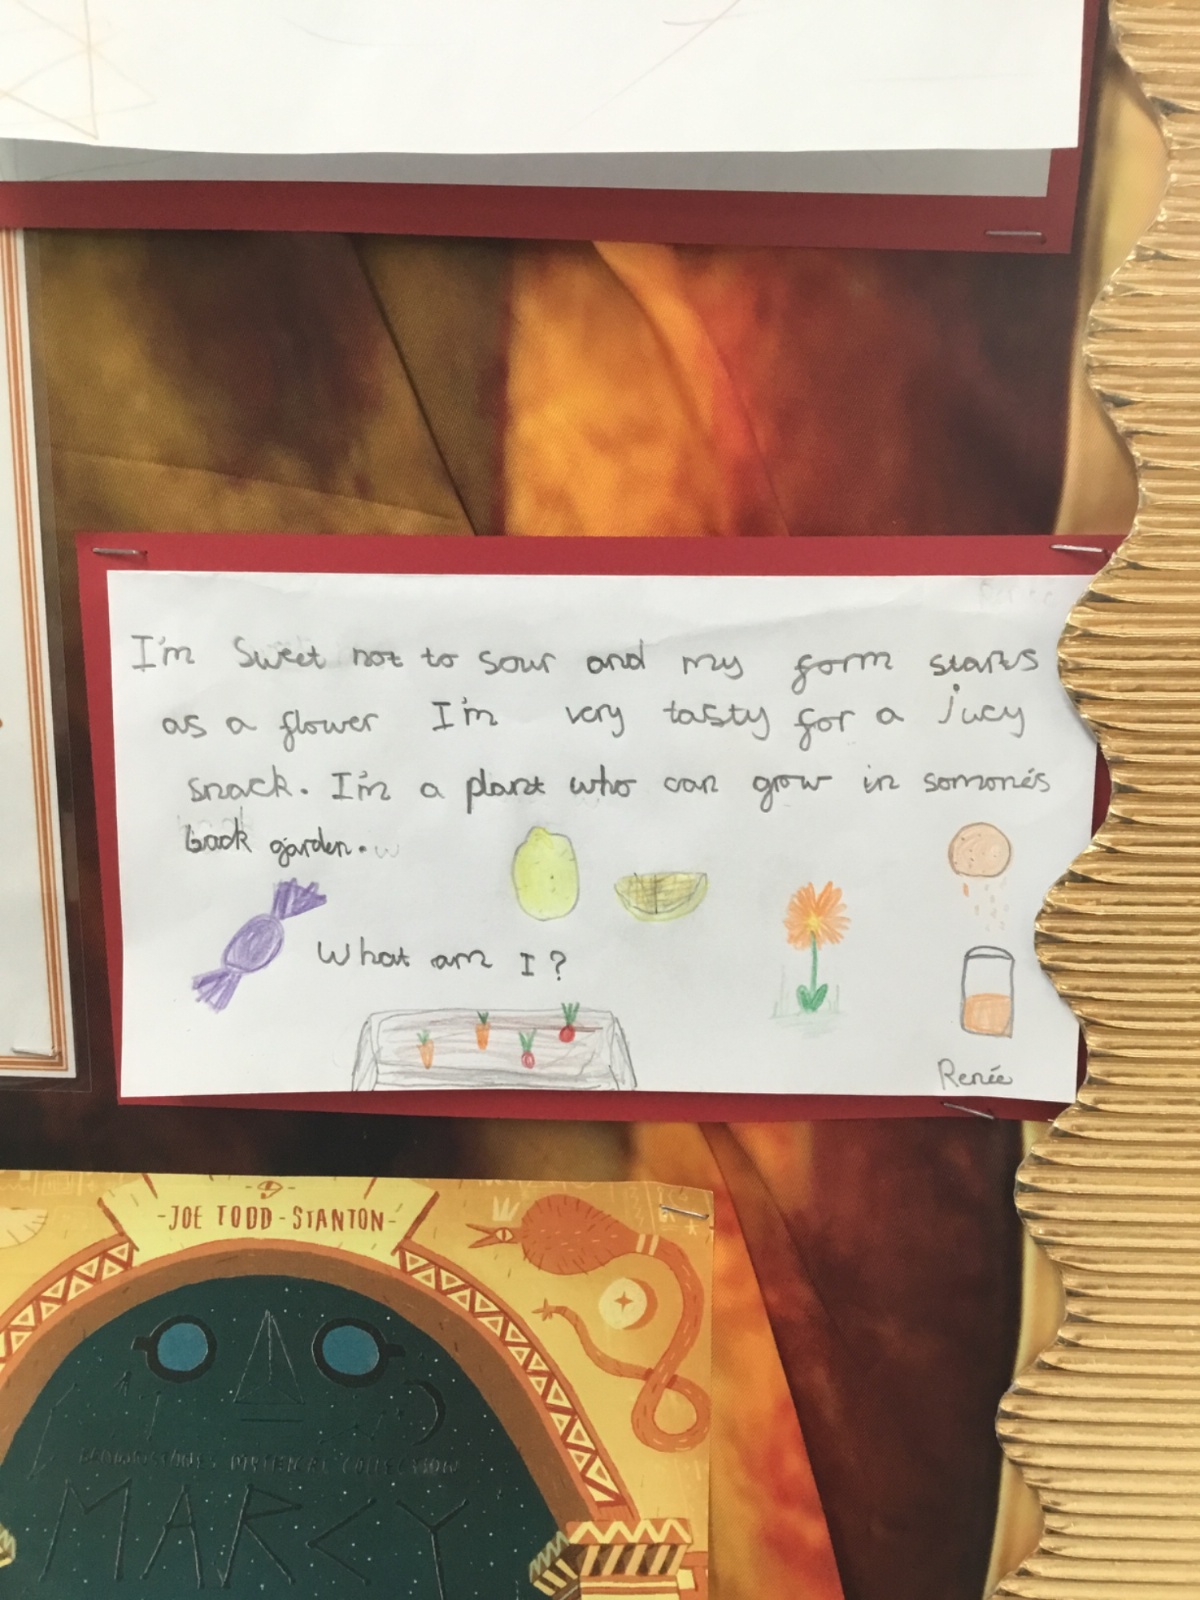 I'm Sweet not to sour and my form starts
as a flower I'm very tasty for a jucy
snack. I'm a plant who can grow in somone's
back garden.
What am I?
Renée
-JOE TODD-STANTON-
BROWNSTONE'S MYTHICAL COLLECTION
MARCY